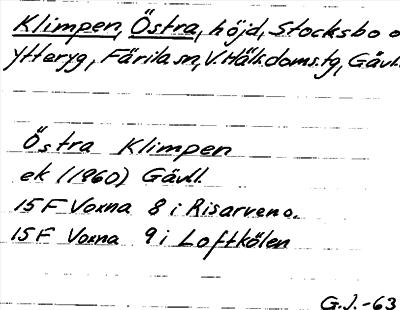 Klimpen, Östra, höjd, Stocksbo o
ytteryg, Färila sn, V. Häls. doms.tg, Gävl.
Östra Klimpen
ek (1960) Gävll.
15F Voxna 8 i Risarven o.
15F Voxna 9 i Loftkölen
G.J.-63